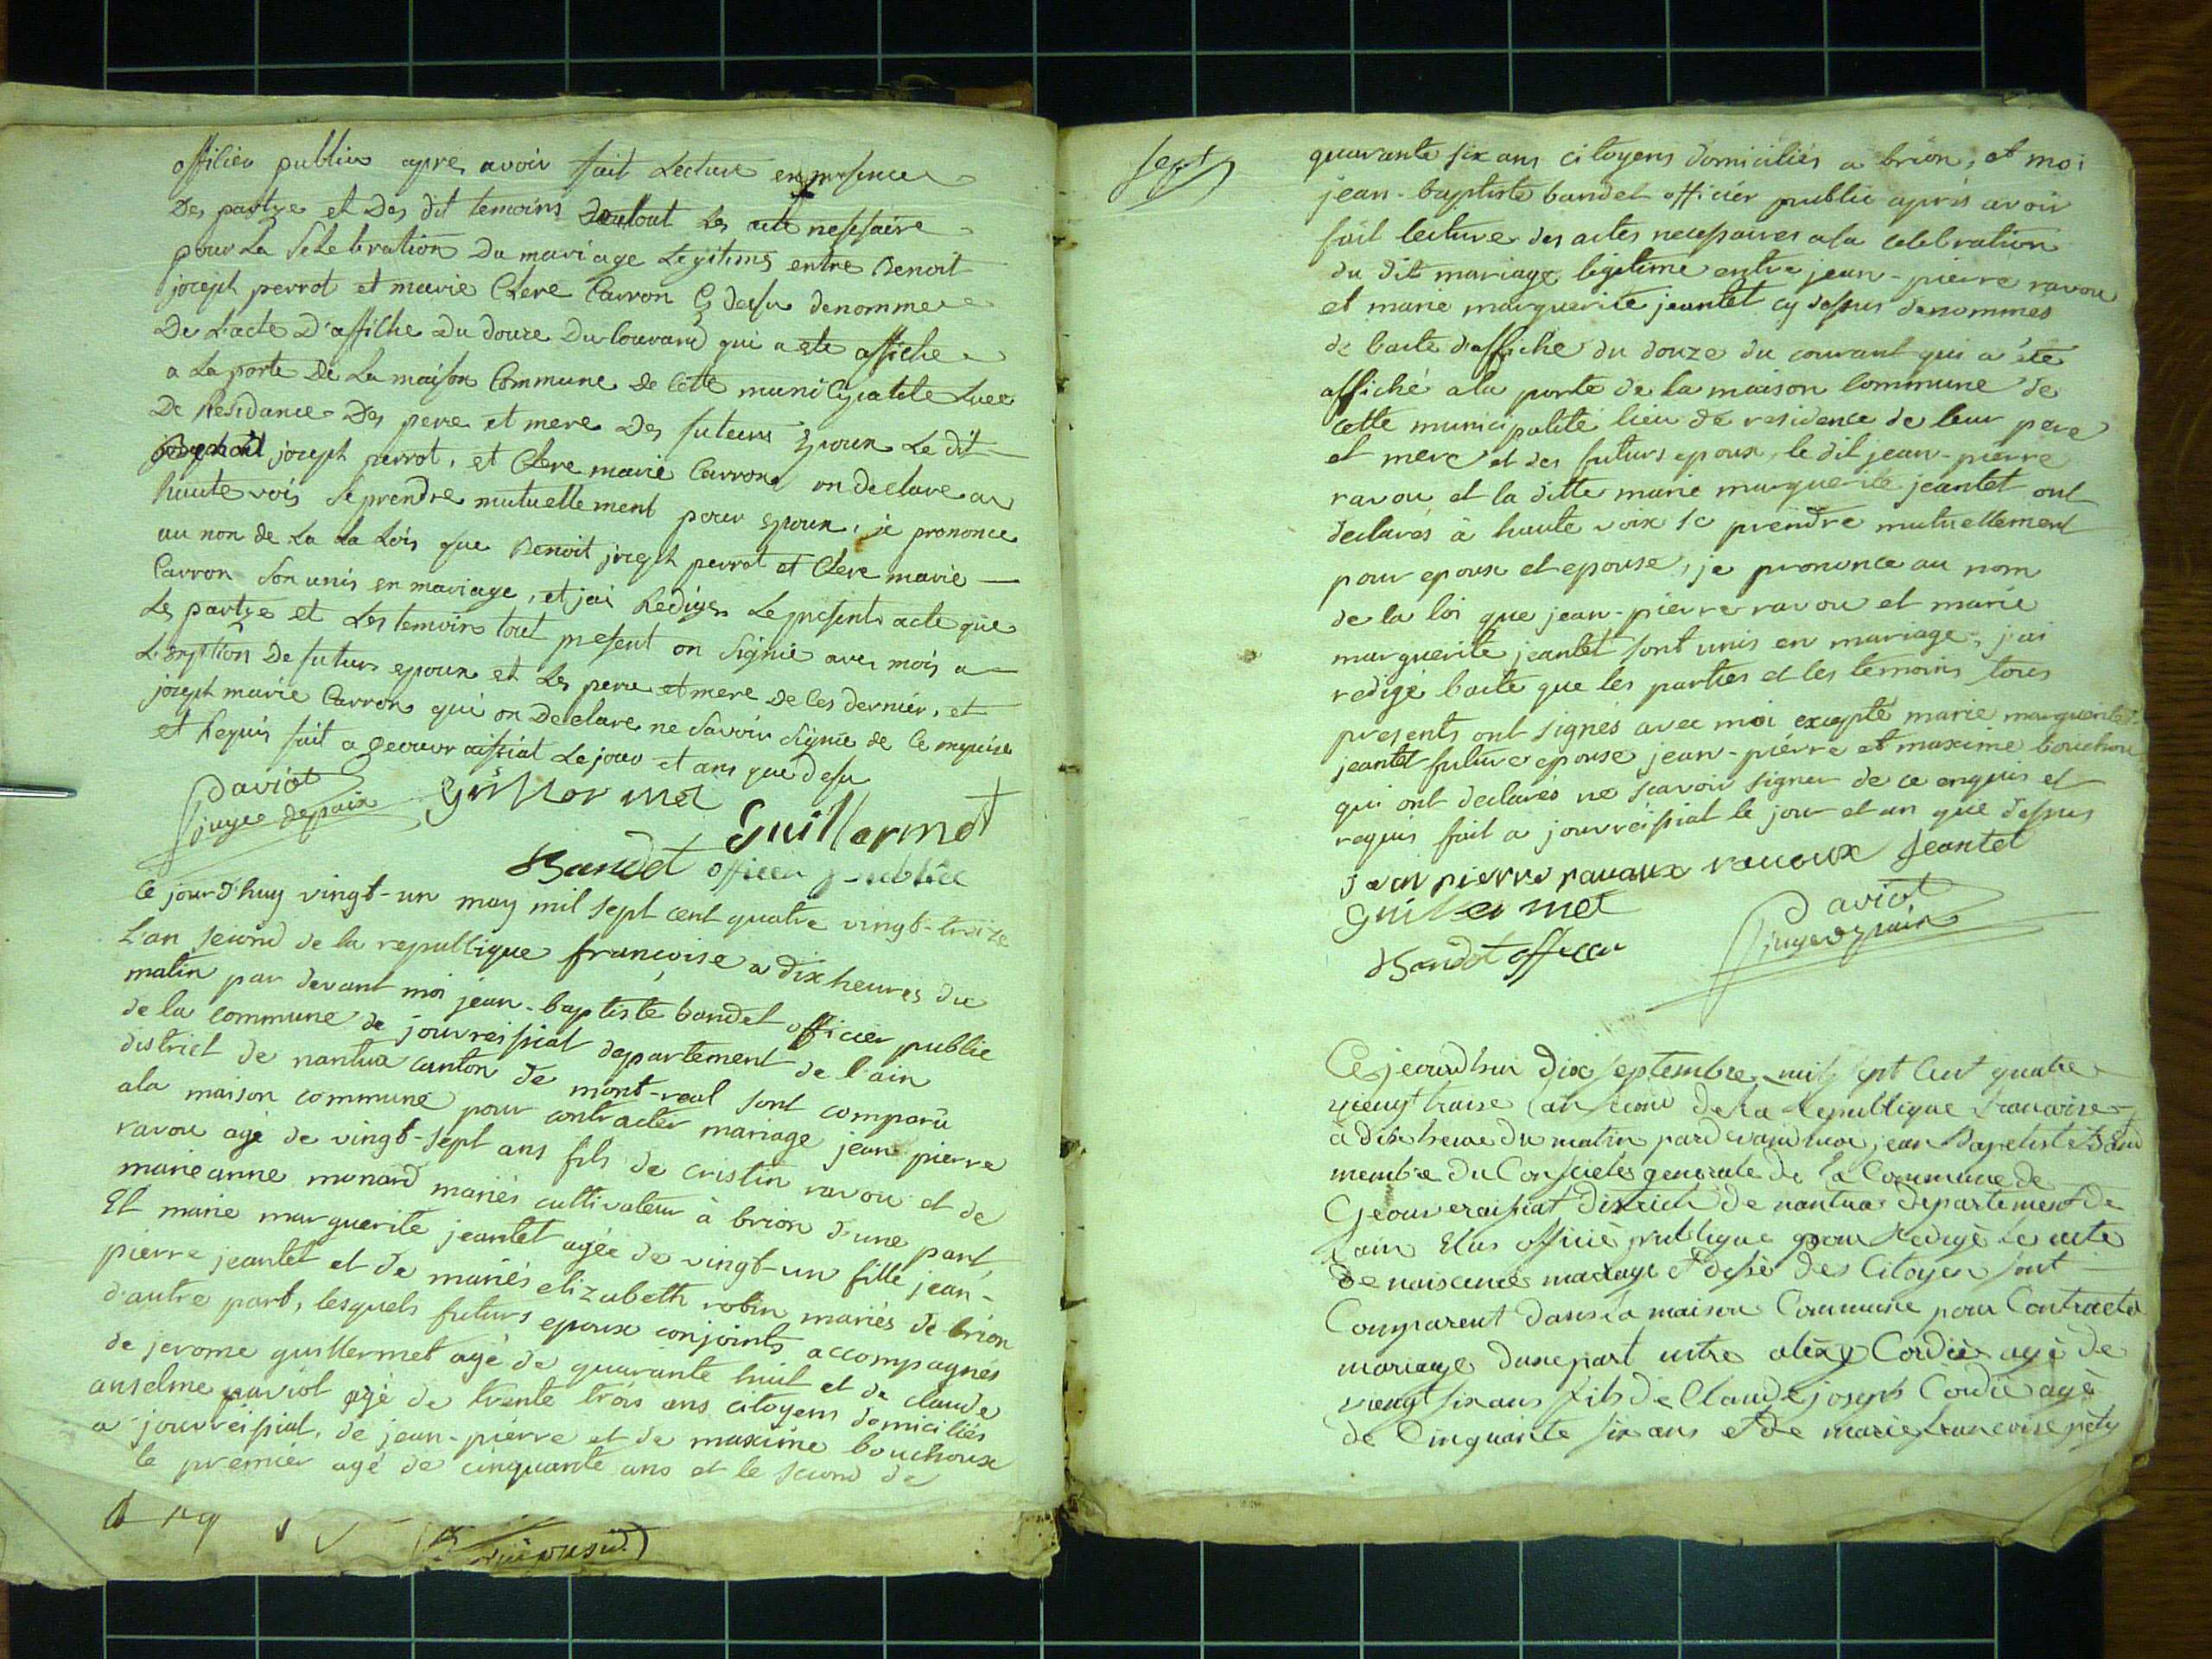 officier public apres avoir fait Lecture en presence
Des partye et Des dit temoins De tout Les acte nessaire
pour La Selebration Du mariage Legitime entre Benoit
joseph perrot et marie Clere Carron Cy desu denommee
De L'acte D'affiche du douze Du Courand qui a ete affiche
a La porte De La maison Commune de Cette municipatite Luee
De Residance Des pere et mere Des futeurs Epoux Le dit
joseph perrot, et Clere marie Carron on declare a
haute vois Se prendre mutuellement pour epoux, je prononce
au non de La La Lois que Benoit joseph perrot et Clere marie
Carron Son unis en mariage, et jai Rediger Le present acte que
Les partye et Les temoins tout present on Signié avec mois a
L'exption De futurs epoux et Les pere et mere De Ces dernier, et
joseph marie Carron qui on Declare ne Savoir Signie de Ce enquise
et Requis fait a geouvraissiat Le jour et ans que Desu
Daviot
juge de paix
Guillermet
Guillarmot
Bandet officier publice
Ce jourd'huy vingt-un may mil sept cent quatre vingt-treize
L'an second de la republique françoise a dix heures du
matin par devant moi jean-baptiste bandet officier public
de la commune de jouvreissiat departement de l'ain
district de nantua canton de mont-real sont comparû
ala maison commune pour contracter mariage jean pierre
ravou agé de vingt-sept ans fils de cristin ravou et de
marie anne monard mariés cultivateur à brion d'une part,
Et marie marguerite jeantet agée de vingt-un fille jean-
pierre jeantet et de mariés elizabeth robin mariés de brion
d'autre part, lesquels futurs epoux conjoints accompagnés
de jerome guillermet agé de quarante huit et de claude
anselme paviot agé de trente trois ans citoyens domiciliés
a jouvreissiat, de jean-pierre et de maxime bouchoux
le premier agé de cinquante ans et le second de
sept
quarante six ans citoyens domiciliés a brion, et moi
jean-baptiste bandet officier public après avoir
fait lecture des actes necessaires a la celebration
du dit mariage legitime entre jean-pierre ravou
et marie marguerite jeantet cy dessus denommés
de l'acte d'affiche du douze du courant qui a été
affiché a la porte de la maison commune de
cette municipalité lieu de residence de leur pere
et mere et des futurs epoux, le dit jean-pierre
ravou et la ditte marie marguerite jeantet ont
declarés à haute voix se prendre mutuellement
pour epoux et epouse, je prononce au nom
de la loi que jean-pierre ravou et marie
marguerite jeantet sont unis en mariage, j'ai
redigé l'acte que les parties et les temoins tous
presents ont signés avec moi excepté marie marguerite
jeantet future epouse jean-pierre et maxime bouchoux
qui ont declarés ne scavoir signer de ce enquis et
requis fait a jouvreissiat le jour et an que dessus
jean pierre ravoux ravoux Jeantet
guillermet
Daviot
juge de paix
Bandet officier
Ce jeourdhui dix septembre mil sept Cent quatre
viengt traise l'an second de La Republique francoise
a dix heure du matin pardevand moi jean Baptiste Band
membre du Conseiele generale de La Commune de
Geouveraissiat District de nantua departement de
l'ain Elus officié publique pour Redigé Le acte
de naiscence mariage et desè des Citoyen sont
Comparent dans La maison Commune pour Contracté
mariage dune part entre alexy Cordiè agè de
viengt six ans fils de Claude joseph Cordiè agè
de Cinquante six ans et de marie francoise pety